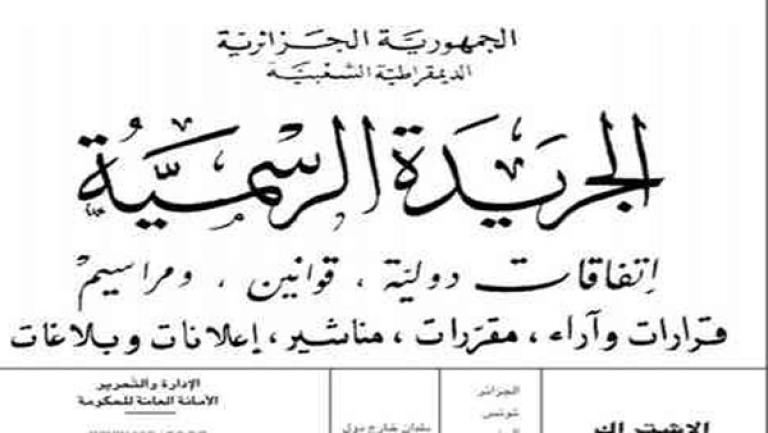 الجمهورية الجزائرية
الديمقراطية الشعبية
الجريدة الرسمية
إتفاقات دولية ، قوانين ، ومراسيم
قرارات وآراء ، مقررات ، مناشير ، إعلانات وبلاغات
الجزائر
تونس
الإدارة والتحرير
الأمانة العامة للحكومة
الاشتراك
بلدان خارج دول